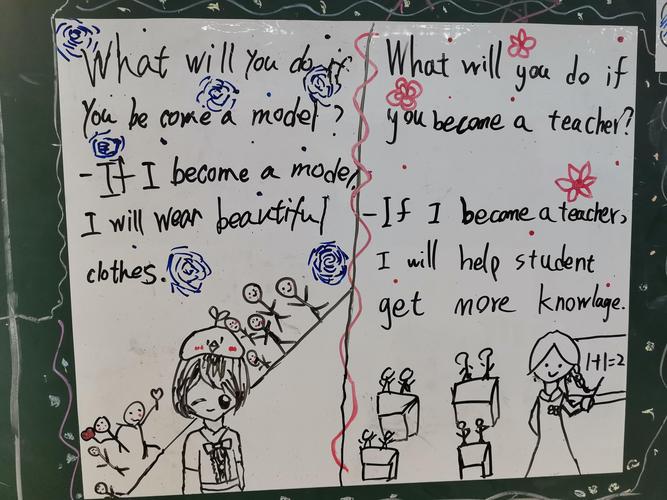 What will you do if
You be come a model?
-If I become a model,
I will wear beautiful
clothes.
What will you do if
you become a teacher?
-If I become a teacher,
I will help student
get more knowlage.
1+1=2